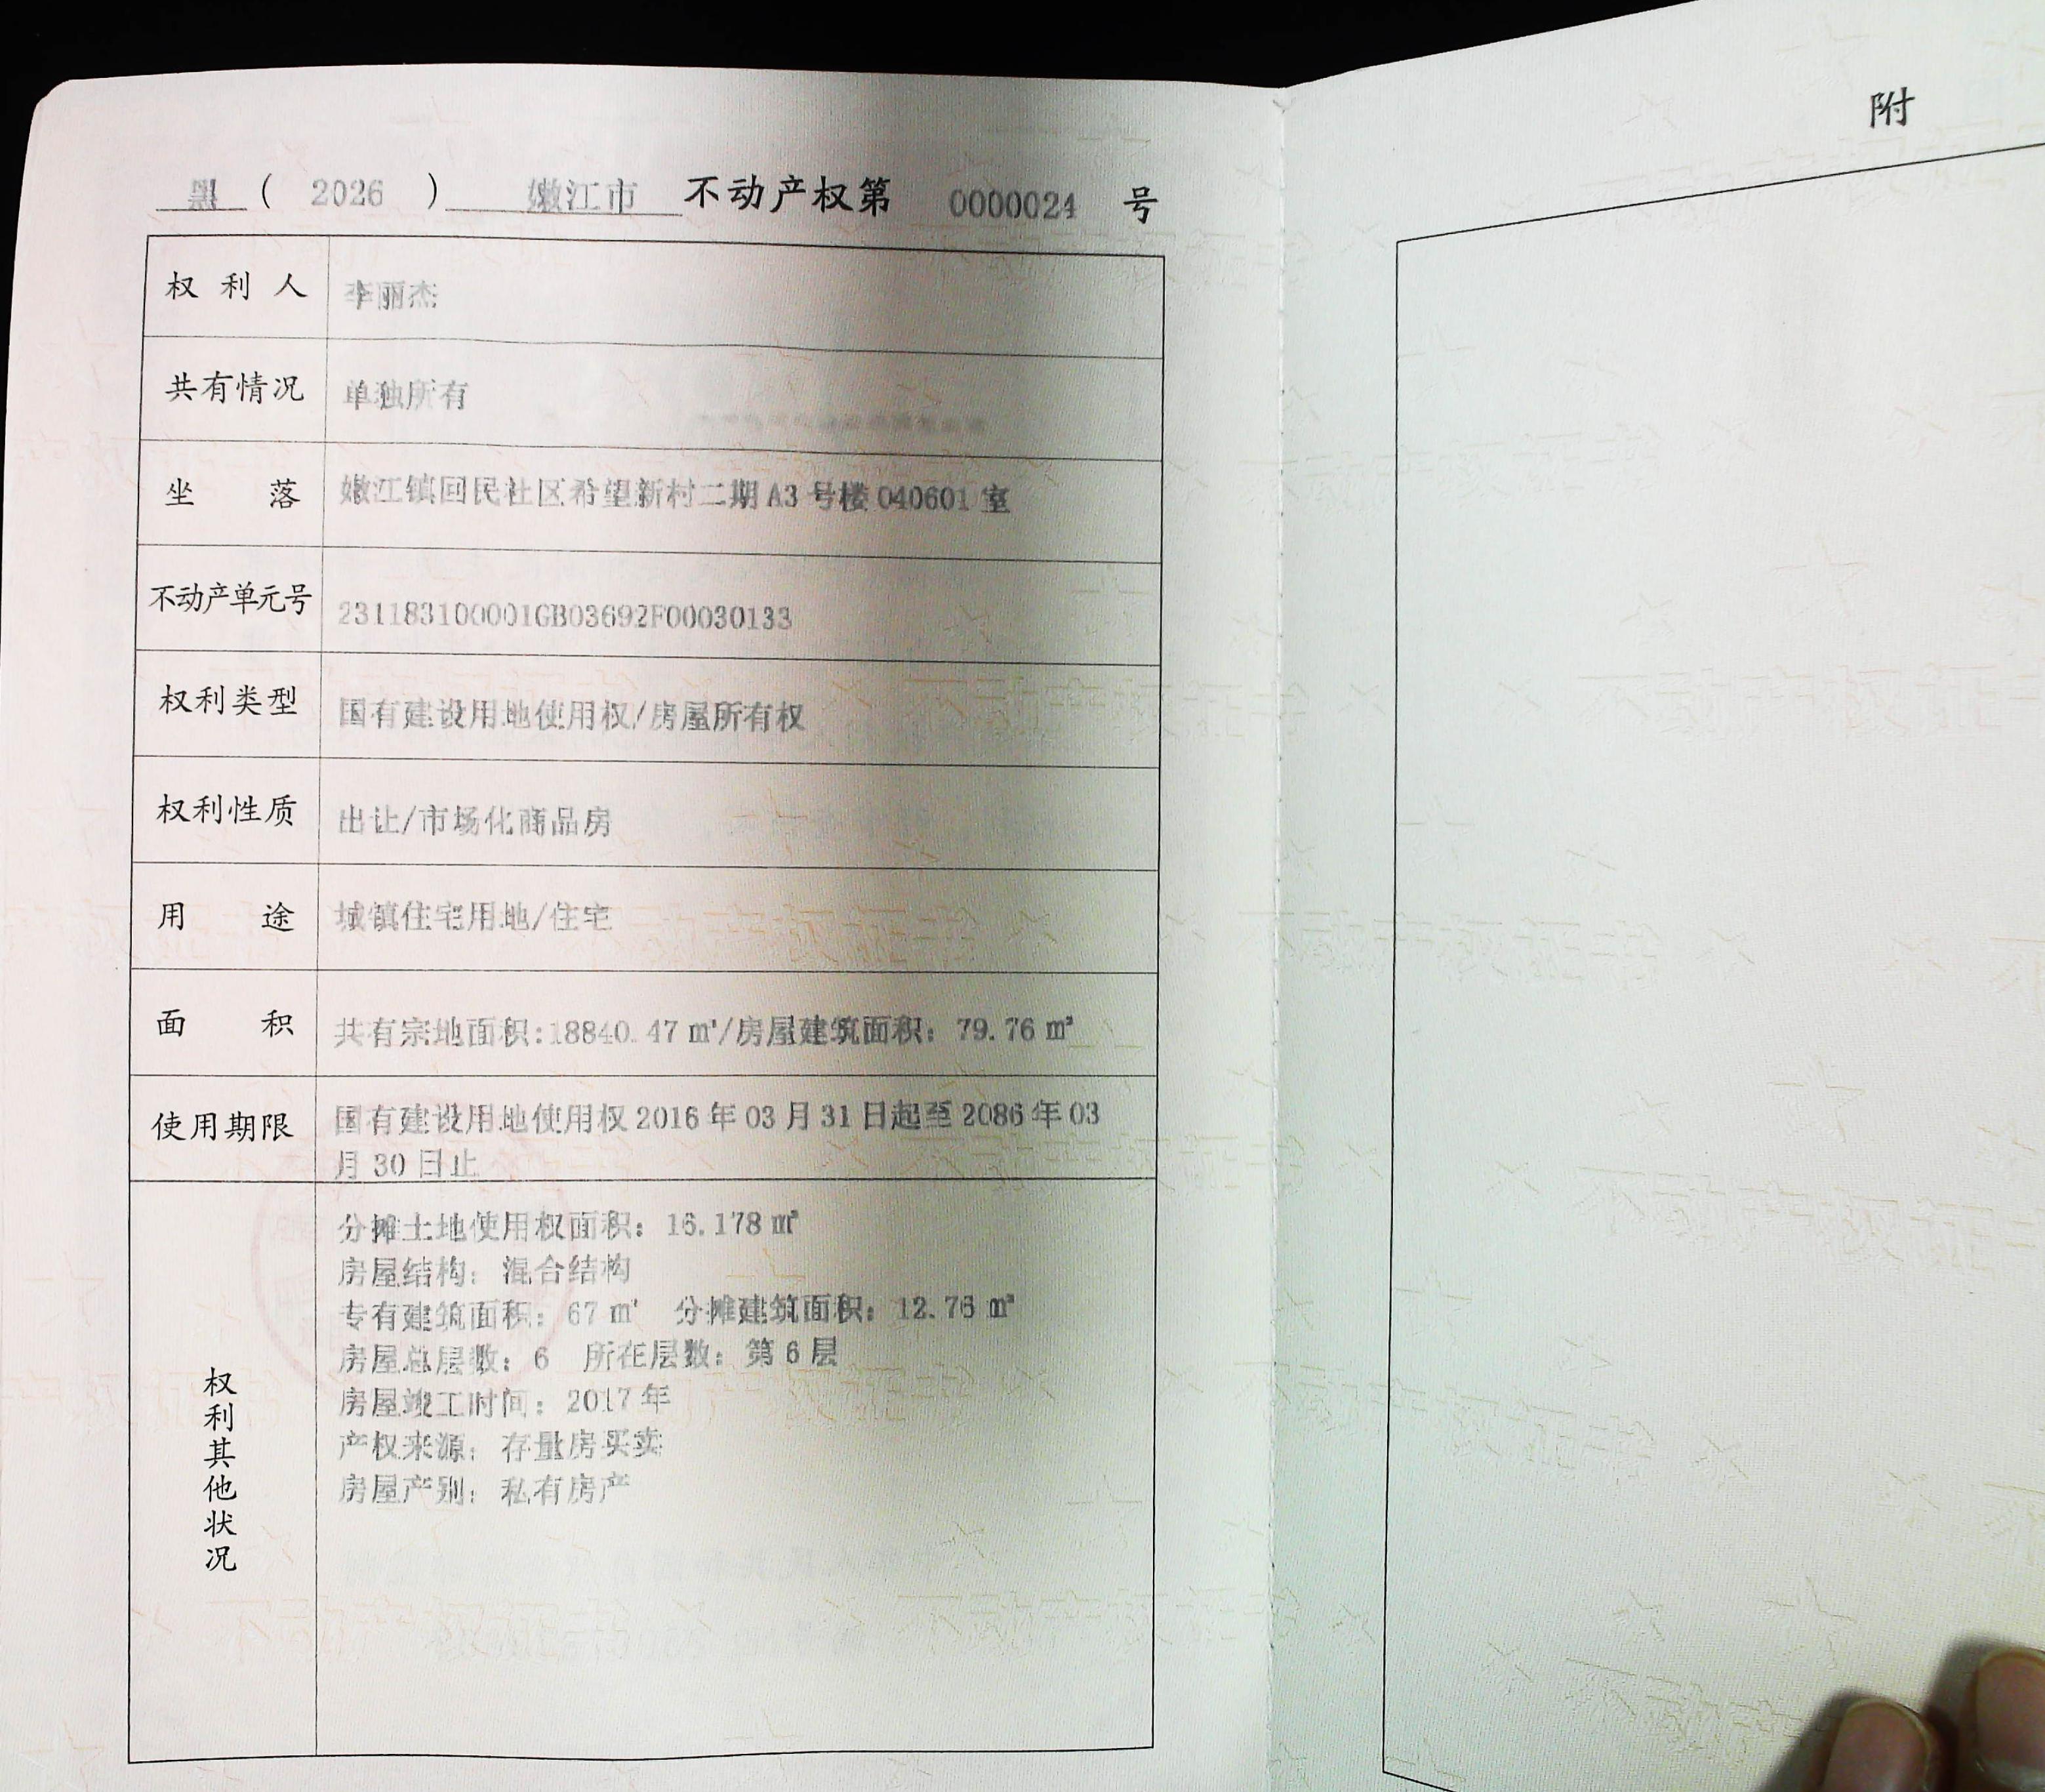 黑 ( 2026 ) 嫩江市 不动产权第 0000024 号
附
权利人 李丽杰
共有情况 单独所有
坐落 嫩江镇回民社区希望新村二期 A3 号楼 040601 室
不动产单元号 231183100001GB03692F00030133
权利类型 国有建设用地使用权/房屋所有权
权利性质 出让/市场化商品房
用途 城镇住宅用地/住宅
面积 共有宗地面积:18840.47 ㎡/房屋建筑面积: 79.76 ㎡
使用期限 国有建设用地使用权 2016 年 03 月 31 日起至 2086 年 03
月 30 日止
权利其他状况
分摊土地使用权面积: 16.178 ㎡
房屋结构: 混合结构
专有建筑面积: 67 ㎡ 分摊建筑面积: 12.76 ㎡
房屋总层数: 6 所在层数: 第 6 层
房屋竣工时间: 2017 年
产权来源: 存量房买卖
房屋产别: 私有房产